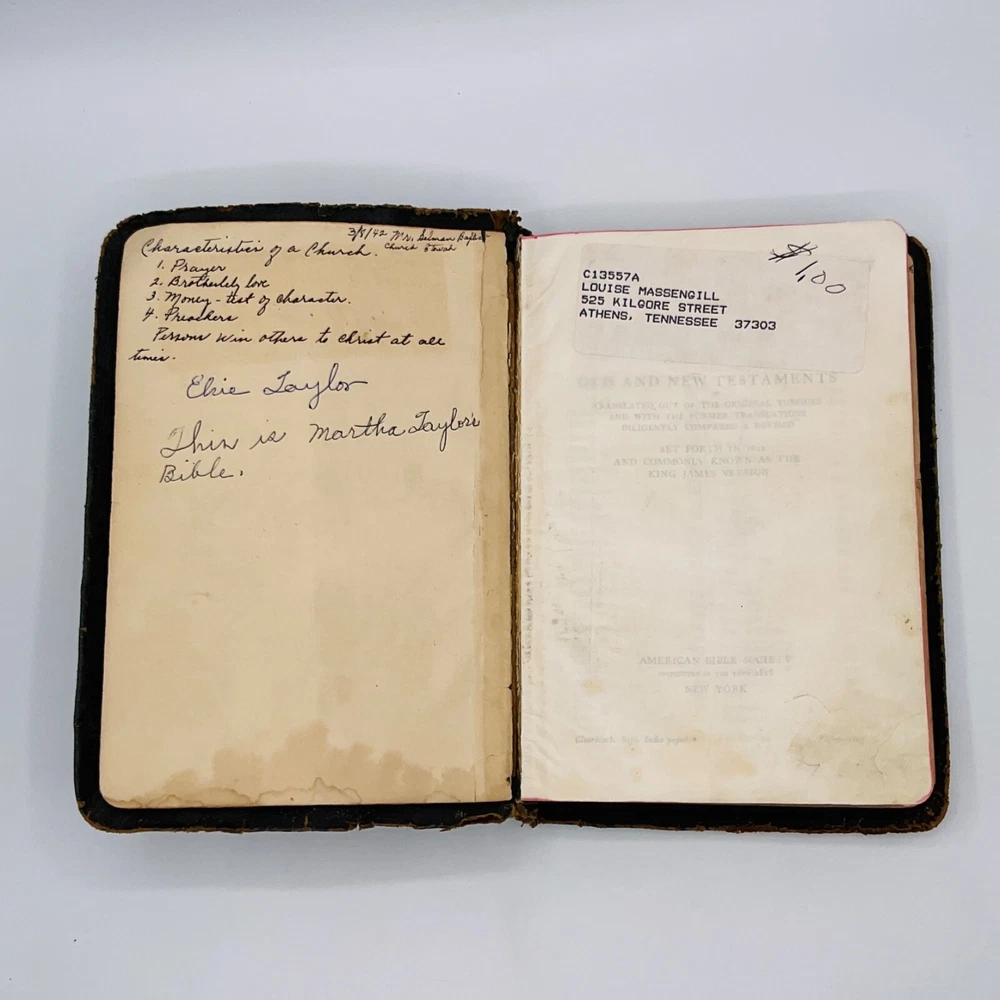 3/8/42 Mr.
Church
Characteristics of a Church.
1. Prayer
2. Brotherly love
3. Money - test of character.
4. Preachers
Persons win others to Christ at all
times.
Elsie Taylor
This is Martha Taylor's
Bible.
$1,00
C13557A
LOUISE MASSENGILL
525 KILGORE STREET
ATHENS, TENNESSEE 37303
OLD AND NEW TESTAMENTS
TRANSLATED OUT OF THE ORIGINAL TONGUES
AND WITH THE FORMER TRANSLATIONS
DILIGENTLY COMPARED & REVISED
SET FORTH IN 1611
AND COMMONLY KNOWN AS THE
KING JAMES VERSION
AMERICAN BIBLE SOCIETY
NEW YORK